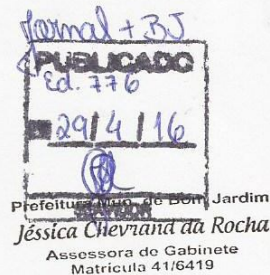 Jornal + BJ
PUBLICADO
Ed. 776
29/4/16
Prefeitura Mun. de Bom Jardim
Jéssica Chevrand da Rocha
Assessora de Gabinete
Matrícula 41/6419